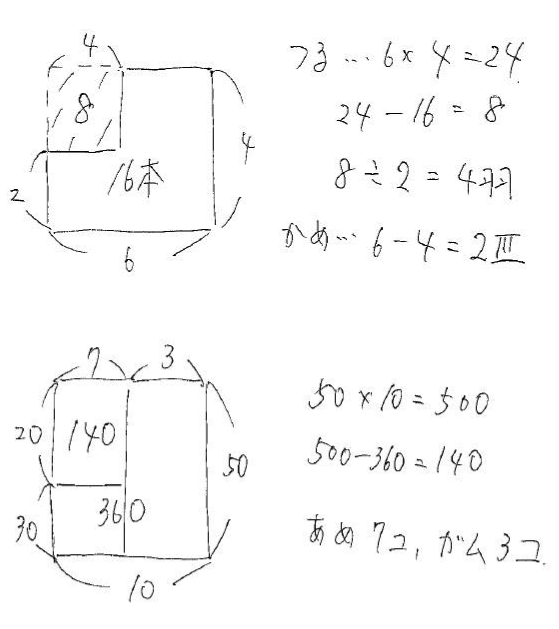 4
8
16本
2
4
6
つる…6×4=24
24-16=8
8÷2=4羽
かめ…6-4=2
7 3
20 140
50
30 360
10
50×10=500
500-360=140
あめ7コ,ガム3コ.